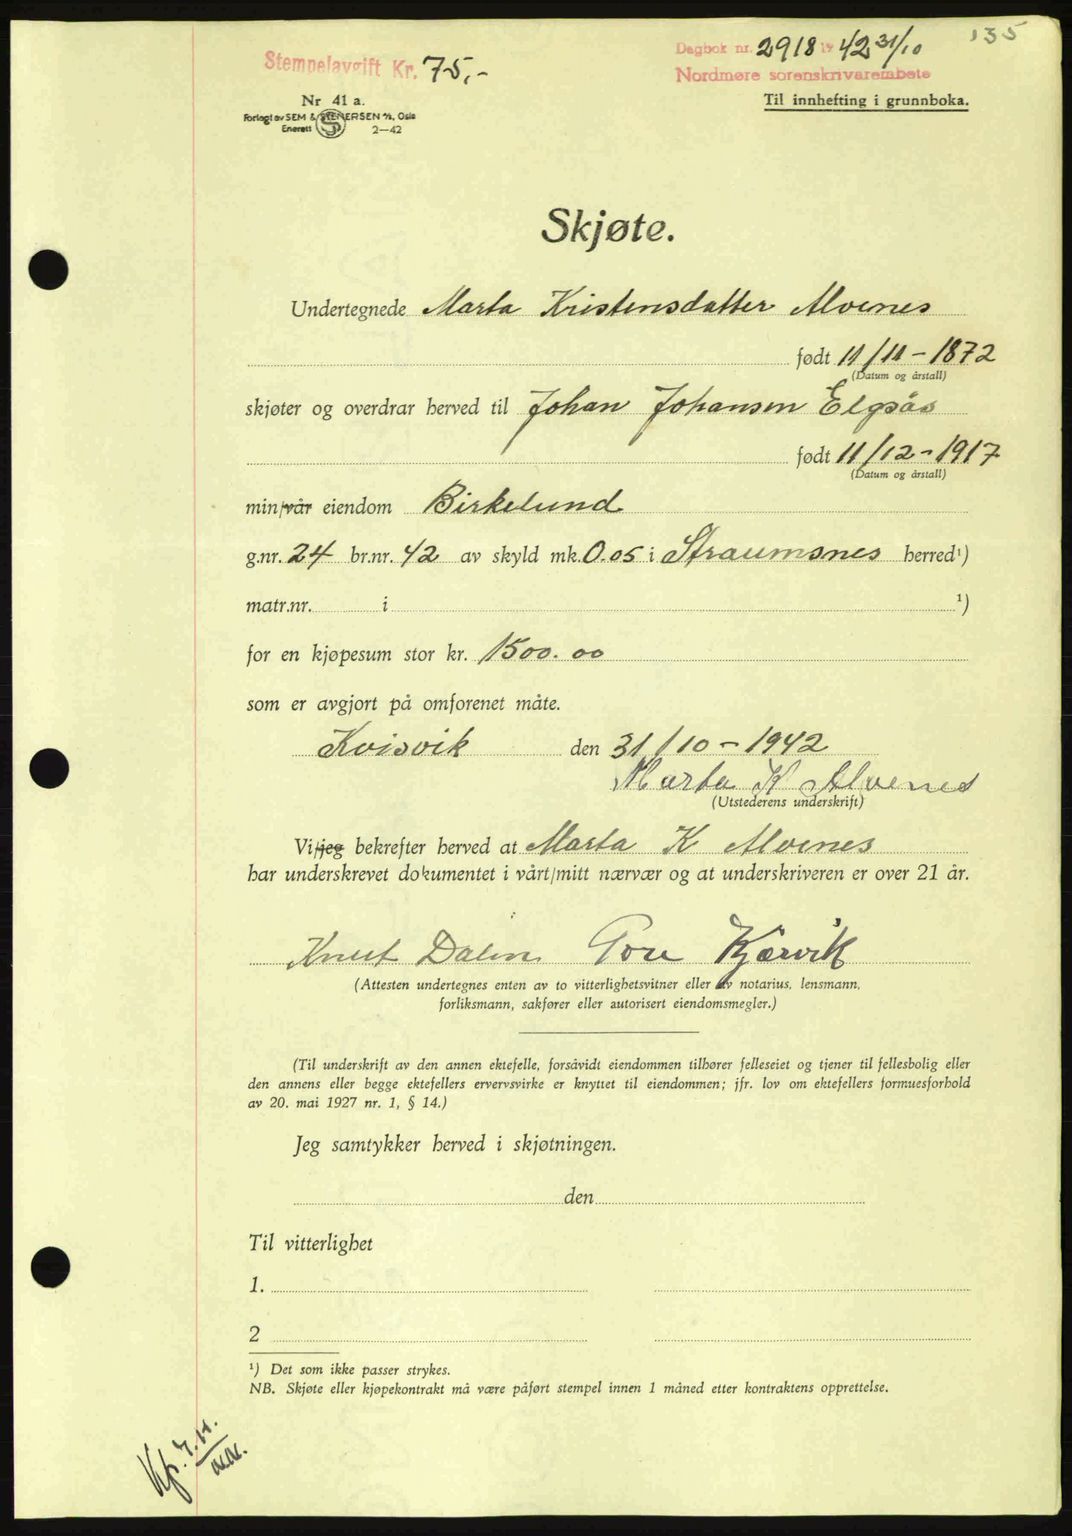 135
Stempelavgift Kr. 75,-
Dagbok nr. 2918 19 42 31/10
Nordmøre sorenskriverembete
Nr 41 a.
Til innhefting i grunnboka.
Forlagt av SEM & STENERSEN A/S, Oslo
Enerett S 2—42
Skjøte.
Undertegnede Marta Kristensdatter Alvenes
født 11/11 - 1872
(Datum og årstall)
skjøter og overdrar herved til Johan Johansen Elgsås
født 11/12 - 1917
(Datum og årstall)
min/vår eiendom Birkelund
g.nr. 24 br.nr. 42 av skyld mk. 0.05 i Straumsnes herred¹)
matr.nr. i ¹)
for en kjøpesum stor kr. 1500.00
som er avgjort på omforenet måte.
Kvisvik den 31/10 - 1942
Marta K Alvenes
(Utstederens underskrift)
Vi/jeg bekrefter herved at Marta K Alvenes
har underskrevet dokumentet i vårt/mitt nærvær og at underskriveren er over 21 år.
Knut Dalen Tore Kjørvik
(Attesten undertegnes enten av to vitterlighetsvitner eller av notarius, lensmann,
forliksmann, sakfører eller autorisert eiendomsmegler.)
(Til underskrift av den annen ektefelle, forsåvidt eiendommen tilhører felleseiet og tjener til fellesbolig eller
den annens eller begge ektefellers ervervsvirke er knyttet til eiendommen; jfr. lov om ektefellers formuesforhold
av 20. mai 1927 nr. 1, § 14.)
Jeg samtykker herved i skjøtningen.
den
Til vitterlighet
1.
2
¹) Det som ikke passer strykes.
NB. Skjøte eller kjøpekontrakt må være påført stempel innen 1 måned etter kontraktens opprettelse.